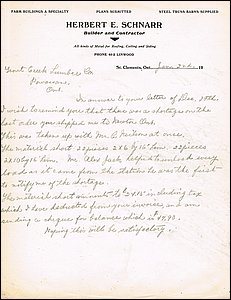 FARM BUILDINGS A SPECIALTY PLANS SUBMITTED STEEL TRUSS BARNS SUPPLIED
HERBERT E. SCHNARR
Builder and Contractor
All kinds of Metal for Roofing, Ceiling and Siding
PHONE 612 LINWOOD
St. Clements, Ont., Jan 2nd 19
Trout Creek Lumber Co
Powassan,
Ont.
In answer to your letter of Dec. 28th.
I wish to remind you that there was a shortage on the
last order you shipped me to Ont.
This was taken up with Mr. at once.
The material short 22 pieces 2x6 by 16' long. 22 pieces
2x10 by 16 long. Mr. Alex helped to unload every
load as it came from the station he was the first
to notify me of the shortage.
The material short amounts to including tax
which I have deducted from your invoice, and am
sending a cheque for balance which is
Hoping this will be satisfactory.